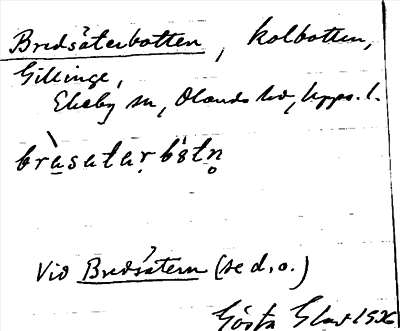 Bredsäterbotten, kolbotten,
Gillinge,
Ekeby sn, Olands hd, Upps. l.
bràsatạrbòtn̥
Vid Bredsätern (se d. o.)
Gösta